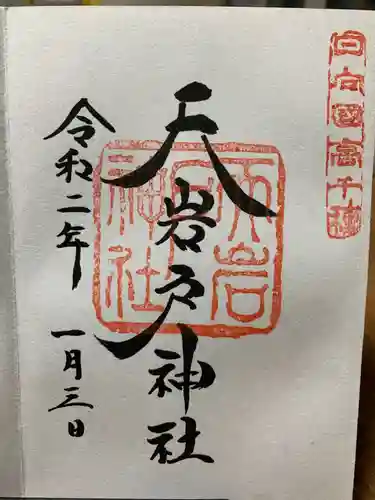 日向國高千穂
天岩戸神社
天岩戸神社
令和二年 一月三日